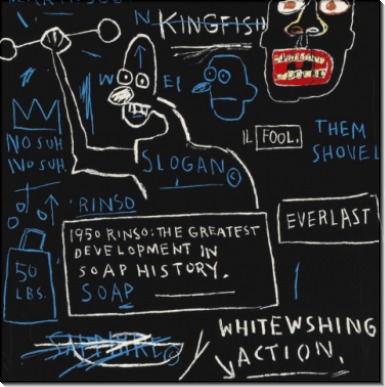 N KINGFISH
W EI
NO SUH
NO SUH.
SLOGAN ©
IL FOOL.
THEM
SHOVEL
RINSO
1950 RINSO: THE GREATEST
DEVELOPMENT IN
SOAP HISTORY.
SOAP
EVERLAST
50
LBS.
WHITEWSHING
ACTION.